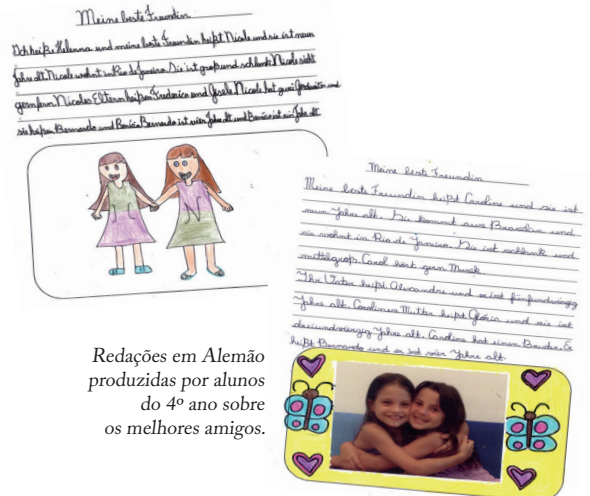 Meine beste Freundin
Ich heiße Helenna und meine beste Freundin heißt Nicole und sie ist neun
Jahre alt. Nicole wohnt in Rio de Janeiro. Sie ist groß und schlank Nicole sieht
gern fern. Nicoles Eltern heißen Frederico und Gisele. Nicole hat zwei und
sie heißen Bernardo und Bernardo ist vier Jahre alt und ist ein Jahr alt
Meine beste Freundin
Meine beste Freundin heißt Caroline und sie ist
neun Jahre alt. Sie kommt aus Brasilien und
sie wohnt in Rio de Janeiro. Sie ist schlank und
mittelgroß. Carol hört gern Musik.
Ihr Vater heißt Alexandre und er ist
Jahre alt. Carolines Mutter heißt Glória und sie ist
dreiundvierzig Jahre alt. Caroline hat einen Bruder. Er
heißt Bernardo und er ist vier Jahre alt.
Redações em Alemão
produzidas por alunos
do 4º ano sobre
os melhores amigos.